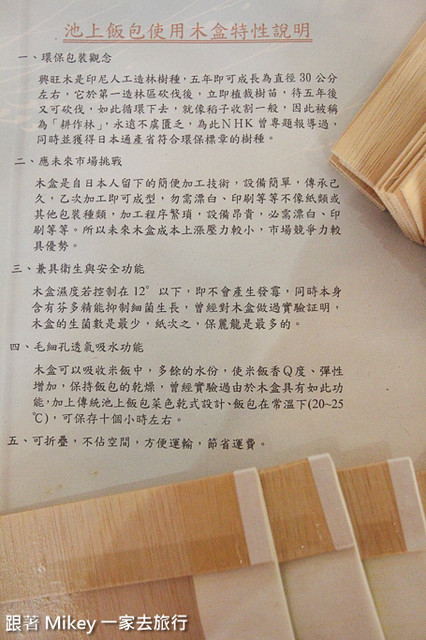 池上飯包使用木盒特性說明
一、環保包裝觀念
興旺木是印尼人工造林樹種，五年即可成長為直徑 30 公分
左右，它於第一造林區砍伐後，立即植栽樹苗，待五年後
又可砍伐，如此循環下去，就像稻子收割一般，因此被稱
為「耕作林」，永遠不虞匱乏，為此NHK曾專題報導過，
同時並獲得日本通產省符合環保標章的樹種。
二、應未來市場挑戰
木盒是自日本人留下的簡便加工技術，設備簡單，傳承已
久，乙次加工即可成型，勿需漂白、印刷等等不像紙類或
其他包裝種類，加工程序繁瑣，設備昂貴，必需漂白、印
刷等等。所以未來木盒成本上漲壓力較小，市場競爭力較
具優勢。
三、兼具衛生與安全功能
木盒濕度若控制在 12° 以下，即不會產生發霉，同時本身
含有芬多精能抑制細菌生長，曾經對木盒做過實驗証明，
木盒的生菌數是最少，紙次之，保麗龍是最多的。
四、毛細孔透氣吸水功能
木盒可以吸收米飯中，多餘的水份，使米飯香Q度、彈性
增加，保持飯包的乾燥，曾經實驗過由於木盒具有如此功
能,加上傳統池上飯包菜色乾式設計、飯包在常溫下(20~25
℃)，可保存十個小時左右。
五、可折疊，不佔空間，方便運輸，節省運費。
跟著 Mikey 一家去旅行